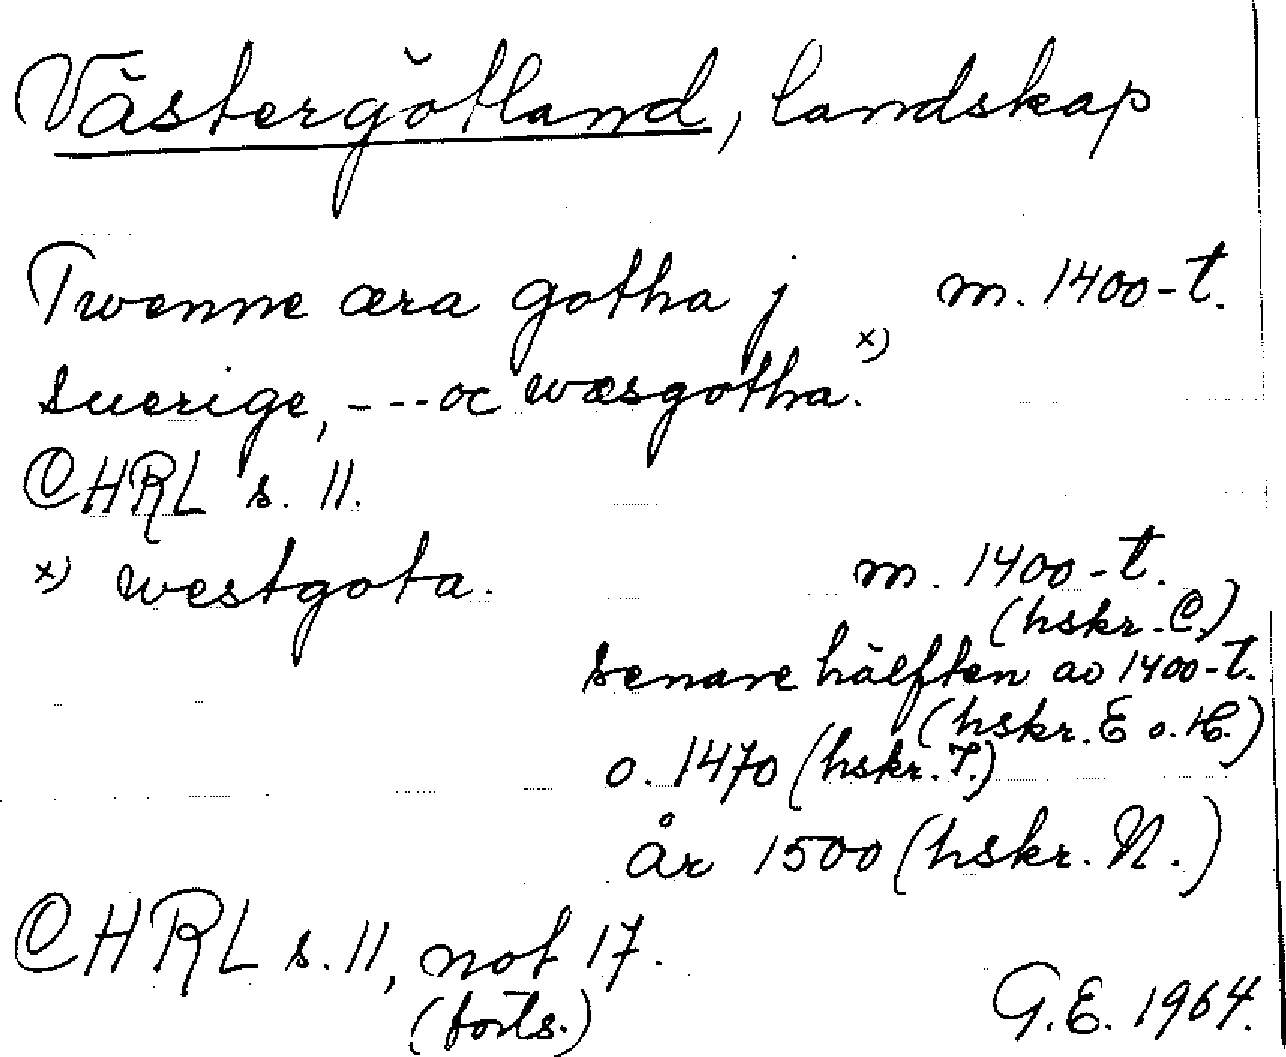 Västergötland, landskap
Twenne æra gotha j m. 1400-t.
suerige, --- oc wæsgotha. x)
CHRL s. 11.
x) westgota. m. 1400-t.
(hskr. C.)
senare hälften av 1400-t.
(hskr. E o. H.)
o. 1470 (hskr. I.)
år 1500 (hskr. N.)
CHRL s. 11, not 17.
(forts.)
G.E. 1964.